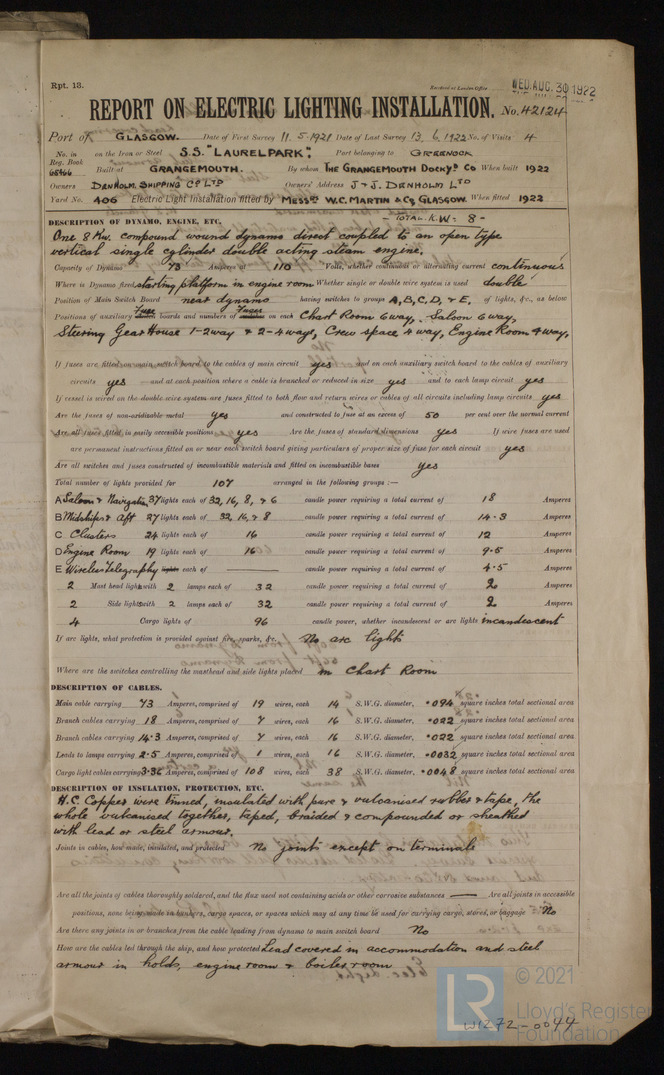 Rpt. 13.
Received at London Office WED. AUG. 30 1922
REPORT ON ELECTRIC LIGHTING INSTALLATION. No. 42124
Port of GLASGOW. Date of First Survey 11.5.1921 Date of Last Survey 13.6.1922 No. of Visits 4
No. in Reg. Book 68966 on the Iron or Steel S.S. "LAURELPARK". Port belonging to GREENOCK
Built at GRANGEMOUTH. By whom THE GRANGEMOUTH DOCKYD Co When built 1922
Owners DENHOLM SHIPPING Co LTD Owners' Address J & J. DENHOLM LTD
Yard No. 406 Electric Light Installation fitted by MESSRS W.C. MARTIN & Co GLASGOW When fitted 1922
DESCRIPTION OF DYNAMO, ENGINE, ETC. - TOTAL. K.W: 8 -
One 8 Kw. compound wound dynamo direct coupled to an open type
vertical single cylinder double acting steam engine.
Capacity of Dynamo 73 Amperes at 110 Volts, whether continuous or alternating current continuous
Where is Dynamo fixed starting platform in engine room Whether single or double wire system is used double
Position of Main Switch Board near dynamo having switches to groups A, B, C, D, & E, of lights, &c., as below
Positions of auxiliary switch Fuse boards and numbers of switches Fuses on each Chart Room 6 way, Saloon 6 way,
Steering Gear House 1-2 way & 2-4 ways, Crew space 4 way, Engine Room 4 way,
If fuses are fitted on main switch board to the cables of main circuit yes and on each auxiliary switch board to the cables of auxiliary
circuits yes and at each position where a cable is branched or reduced in size yes and to each lamp circuit yes
If vessel is wired on the double wire system are fuses fitted to both flow and return wires or cables of all circuits including lamp circuits yes
Are the fuses of non-oxidizable metal yes and constructed to fuse at an excess of 50 per cent over the normal current
Are all fuses fitted in easily accessible positions yes Are the fuses of standard dimensions yes If wire fuses are used
are permanent instructions fitted on or near each switch board giving particulars of proper size of fuse for each circuit yes
Are all switches and fuses constructed of incombustible materials and fitted on incombustible bases yes
Total number of lights provided for 107 arranged in the following groups :—
A Saloon & Navigation 37 lights each of 32, 16, 8, & 6 candle power requiring a total current of 18 Amperes
B Midships & Aft 27 lights each of 32, 16, & 8 candle power requiring a total current of 14.3 Amperes
C Clusters 24 lights each of 16 candle power requiring a total current of 12 Amperes
D Engine Room 19 lights each of 16 candle power requiring a total current of 9.5 Amperes
E Wireless Telegraphy lights each of — candle power requiring a total current of 4.5 Amperes
2 Mast head lights with 2 lamps each of 32 candle power requiring a total current of 2 Amperes
2 Side lights with 2 lamps each of 32 candle power requiring a total current of 2 Amperes
4 Cargo lights of 96 candle power, whether incandescent or arc lights incandescent
If arc lights, what protection is provided against fire, sparks, &c. No arc lights
Where are the switches controlling the masthead and side lights placed in Chart Room
DESCRIPTION OF CABLES.
Main cable carrying 73 Amperes, comprised of 19 wires, each 14 S.W.G. diameter, .094 square inches total sectional area
Branch cables carrying 18 Amperes, comprised of 7 wires, each 16 S.W.G. diameter, .022 square inches total sectional area
Branch cables carrying 14.3 Amperes, comprised of 7 wires, each 16 S.W.G. diameter, .022 square inches total sectional area
Leads to lamps carrying 2.5 Amperes, comprised of 1 wires, each 16 S.W.G. diameter, .0032 square inches total sectional area
Cargo light cables carrying 3.36 Amperes, comprised of 108 wires, each 38 S.W.G. diameter, .0048 square inches total sectional area
DESCRIPTION OF INSULATION, PROTECTION, ETC.
H.C. Copper wire tinned, insulated with pure & vulcanised rubber & tape, the
whole vulcanised together, taped, braided & compounded or sheathed
with lead or steel armour.
Joints in cables, how made, insulated, and protected No joints except on terminals
Are all the joints of cables thoroughly soldered, and the flux used not containing acids or other corrosive substances — Are all joints in accessible
positions, none being made in bunkers, cargo spaces, or spaces which may at any time be used for carrying cargo, stores, or baggage No
Are there any joints in or branches from the cable leading from dynamo to main switch board No
How are the cables led through the ship, and how protected Lead covered in accommodation and steel
armour in holds, engine room & boiler room
© 2021
Lloyd's Register
Foundation
LR
W1272-0044